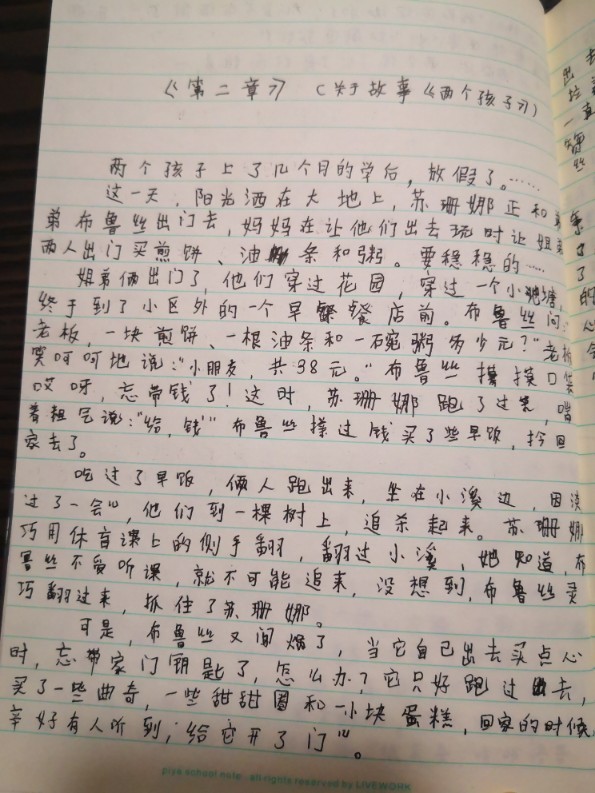 《第二章》 （关于故事《两个孩子》）
两个孩子上了几个月的学后，放假了。……
这一天，阳光洒在大地上，苏珊娜正和弟
弟布鲁丝出门去，妈妈在让他们出去玩时让姐弟
两人出门买煎饼、油条和粥。要稳稳的……
姐弟俩出门了，他们穿过花园，穿过一个小池塘，
终于到了小区外的一个早餐店前。布鲁丝问：“
老板，一块煎饼、一根油条和一碗粥多少元？”老板
笑呵呵地说：“小朋友，共38元。”布鲁丝摸摸口袋
哎呀，忘带钱了！这时，苏珊娜跑了过来，喘
着粗气说：“给，钱”布鲁丝接过钱买了些早饭，拎回
家去了。
吃过了早饭，俩人跑出来，坐在小溪边，
过了一会儿，他们到一棵树上，追杀起来。苏珊娜
巧用体育课上的侧手翻，翻过小溪，她知道，布
鲁丝不爱听课，就不可能追来，没想到，布鲁丝灵
巧翻过来，抓住了苏珊娜。
可是，布鲁丝又闯祸了，当它自己出去买点心
时，忘带家门钥匙了，怎么办？它只好跑过去，
买了一些曲奇，一些甜甜圈和一小块蛋糕，回家的时候，
幸好有人听到，给它开了门儿。
piya school note . all rights reserved by LIVEWORK